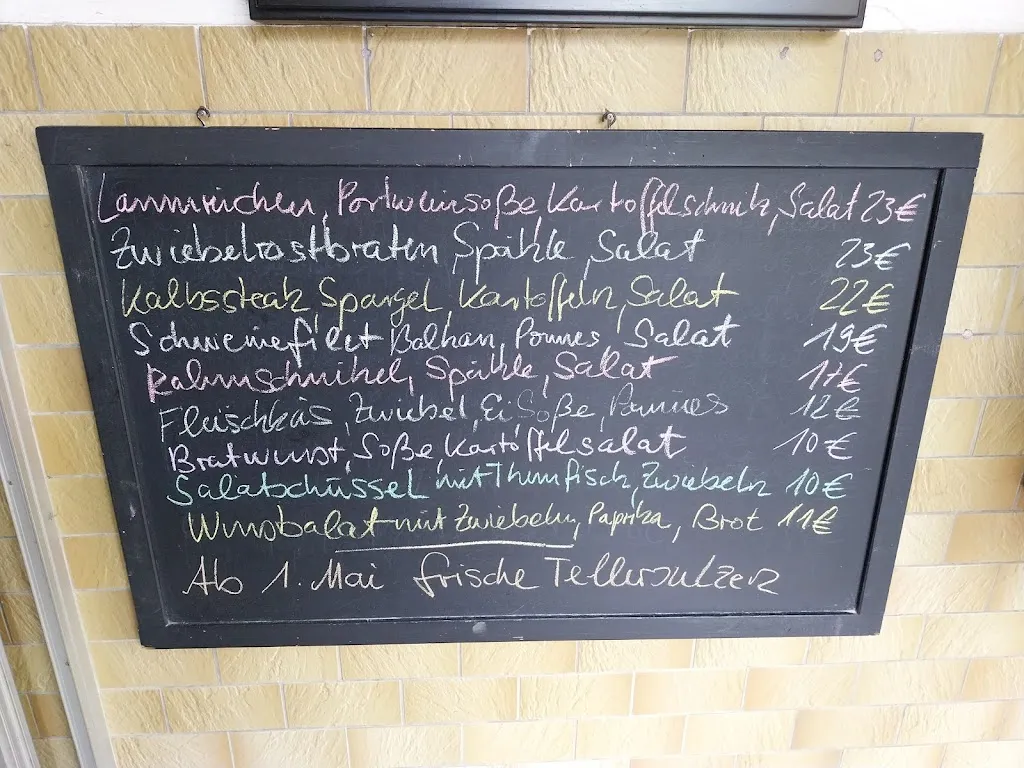 Lammrücken, Portweinsoße Kartoffelschnitz, Salat 23€
Zwiebelrostbraten, Spätzle, Salat 23€
Kalbssteak, Spargel, Kartoffeln, Salat 22€
Schweinefilet Balkan, Pommes, Salat 19€
Rahmschnitzel, Spätzle, Salat 17€
Fleischkäs, Zwiebel, Ei Soße, Pommes 12€
Bratwurst, Soße, Kartoffelsalat 10€
Salatschüssel mit Thunfisch, Zwiebeln 10€
Wurstsalat mit Zwiebeln, Paprika, Brot 11€
Ab 1. Mai frische Tellersulzen